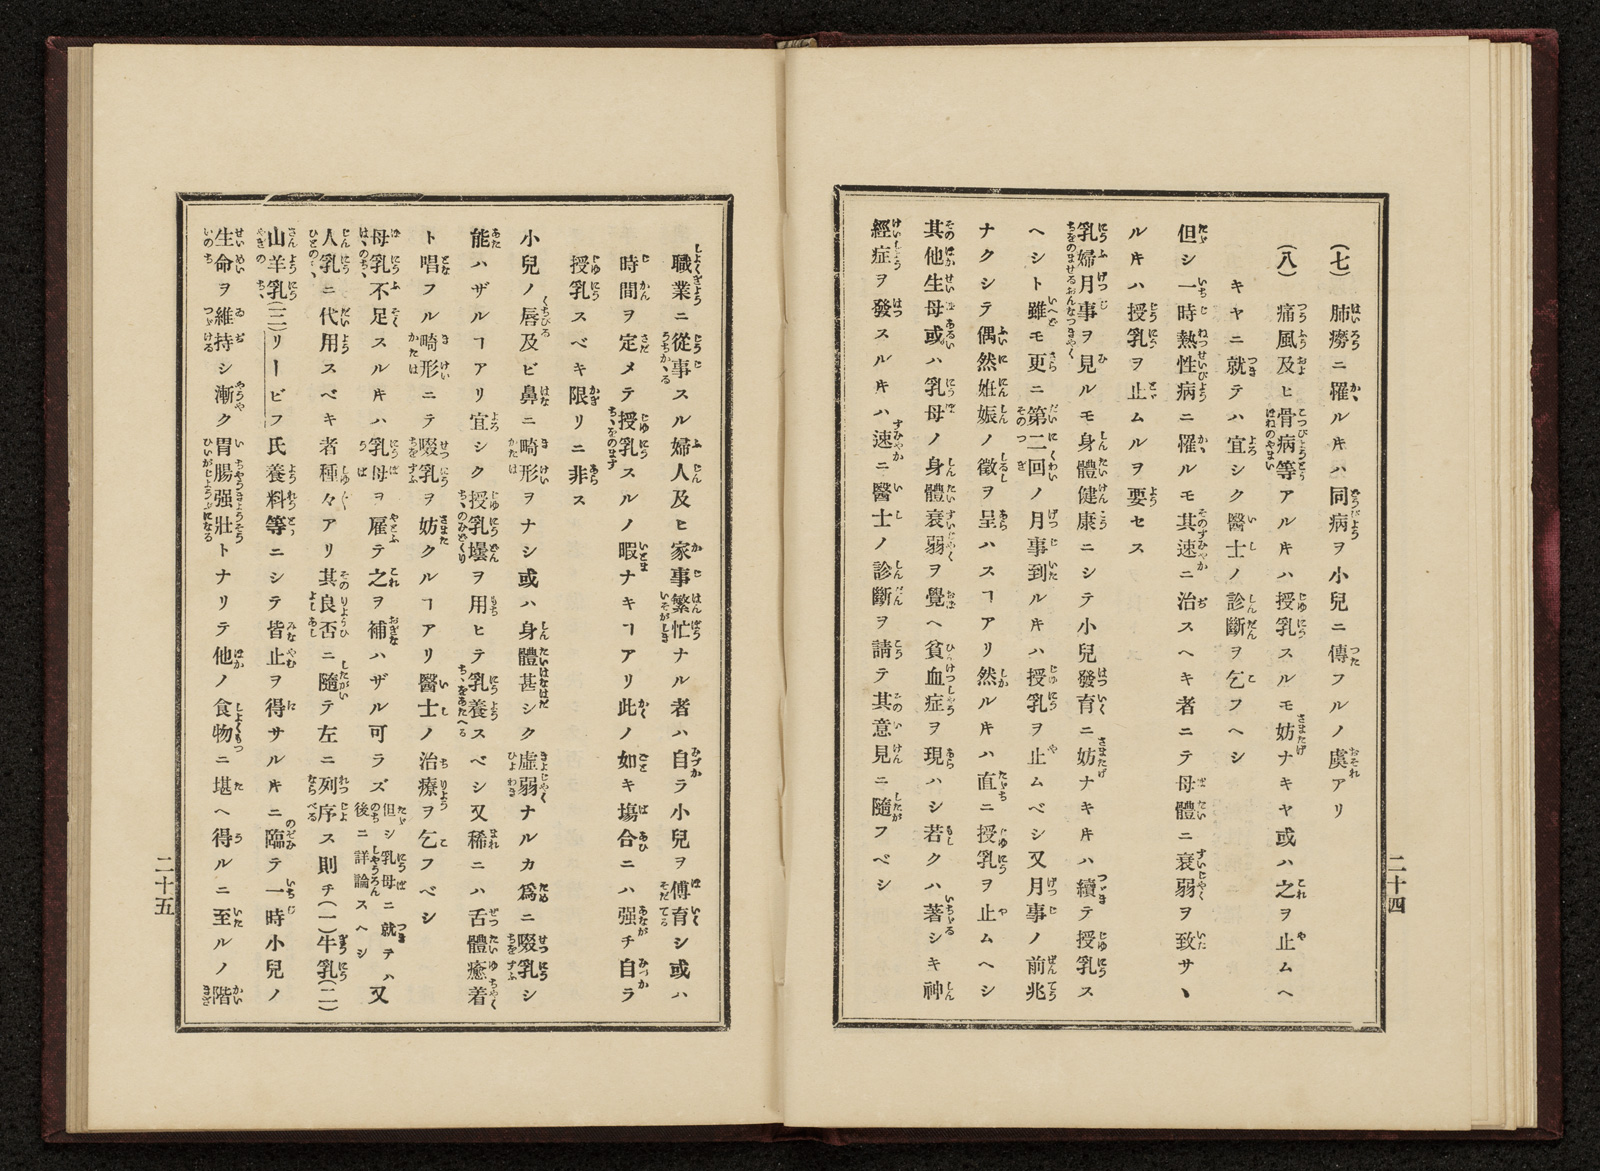 (七) 肺癆ニ罹ルキハ同病ヲ小兒ニ傳フルノ虞アリ
(八) 痛風及ヒ骨病等アルキハ授乳スルモ妨ナキヤ或ハ之ヲ止ムヘ
キヤニ就テハ宜シク醫士ノ診斷ヲ乞フヘシ
但シ一時熱性病ニ罹ルモ其速ニ治スヘキ者ニテ母體ニ衰弱ヲ致サヽ
ルルキハ授乳ヲ止ムルヲ要セス
乳婦月事ヲ見ルモ身體健康ニシテ小兒發育ニ妨ナキキハ續テ授乳ス
ヘシト雖モ更ニ第二回ノ月事到ルキハ授乳ヲ止ムベシ又月事ノ前兆
ナクシテ偶然姙娠ノ徵ヲ呈ハスヿアリ然ルキハ直ニ授乳ヲ止ムヘシ
其他生母或ハ乳母ノ身體衰弱ヲ覺ヘ貧血症ヲ現ハシ若クハ著シキ神
經症ヲ發スルキハ速ニ醫士ノ診斷ヲ請テ其意見ニ隨フベシ
二十四
職業ニ從事スル婦人及ヒ家事繁忙ナル者ハ自ラ小兒ヲ傅育シ或ハ
時間ヲ定メテ授乳スルノ暇ナキヿアリ此ノ如キ塲合ニハ强チ自ラ
授乳スベキ限リニ非ス
小兒ノ唇及ビ鼻ニ畸形ヲナシ或ハ身體甚シク虛弱ナルカ爲ニ啜乳シ
能ハザルヿアリ宜シク授乳壜ヲ用ヒテ乳養スベシ又稀ニハ舌體癒着
ト唱フル畸形ニテ啜乳ヲ妨クルヿアリ醫士ノ治療ヲ乞フベシ
母乳不足スルキハ乳母ヲ雇テ之ヲ補ハザル可ラズ但シ乳母ニ就テハ後ニ詳論スヘシ又
人乳ニ代用スベキ者種々アリ其良否ニ隨テ左ニ列序ス則チ(一)牛乳(二)
山羊乳(三)リービフ氏養料等ニシテ皆止ヲ得サルキニ臨テ一時小兒ノ
生命ヲ維持シ漸ク胃腸强壯トナリテ他ノ食物ニ堪ヘ得ルニ至ルノ階
二十五